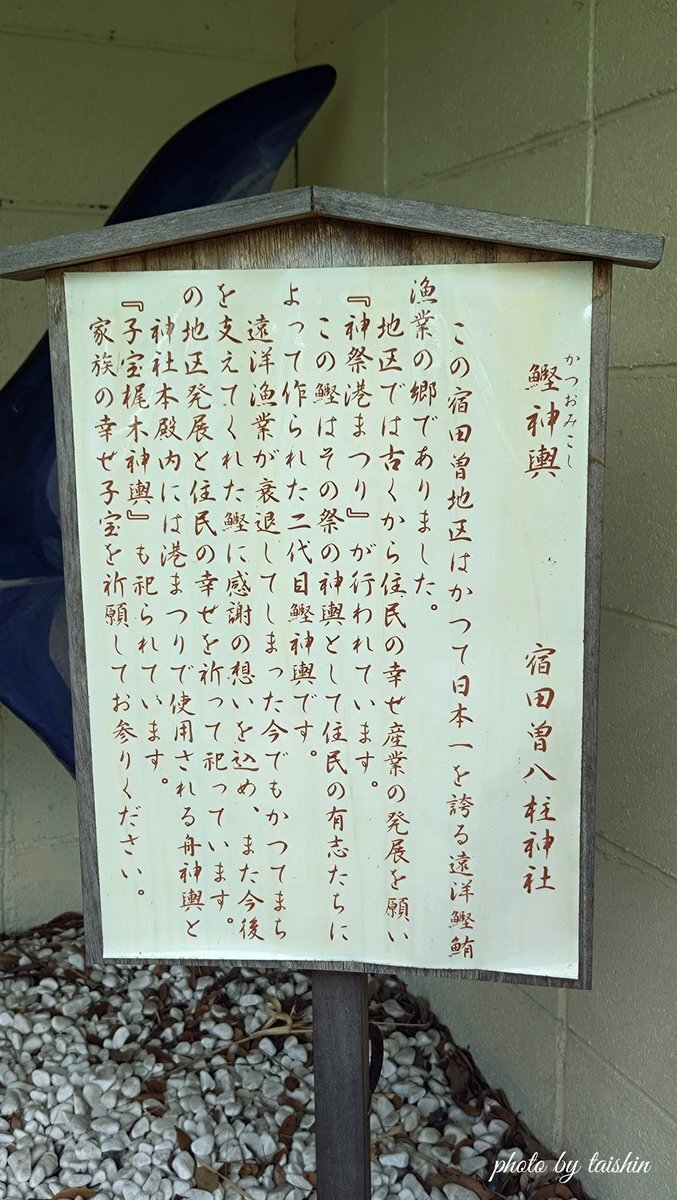 かつおみこし
鰹神輿　宿田曽八柱神社
この宿田曽地区はかつて日本一を誇る遠洋鰹鮪
漁業の郷でありました。
地区では古くから住民の幸せ産業の発展を願い
『神祭港まつり』が行われています。
この鰹はその祭の神輿として住民の有志たちに
よって作られた二代目鰹神輿です。
遠洋漁業が衰退してしまった今でもかつてまち
を支えてくれた鰹に感謝の想いを込め、また今後
の地区発展と住民の幸せを祈って祀っています。
神社本殿内には港まつりで使用される舟神輿と
『子宝梶木神輿』も祀られています。
家族の幸せ子宝を祈願してお参りください。
photo by taishin